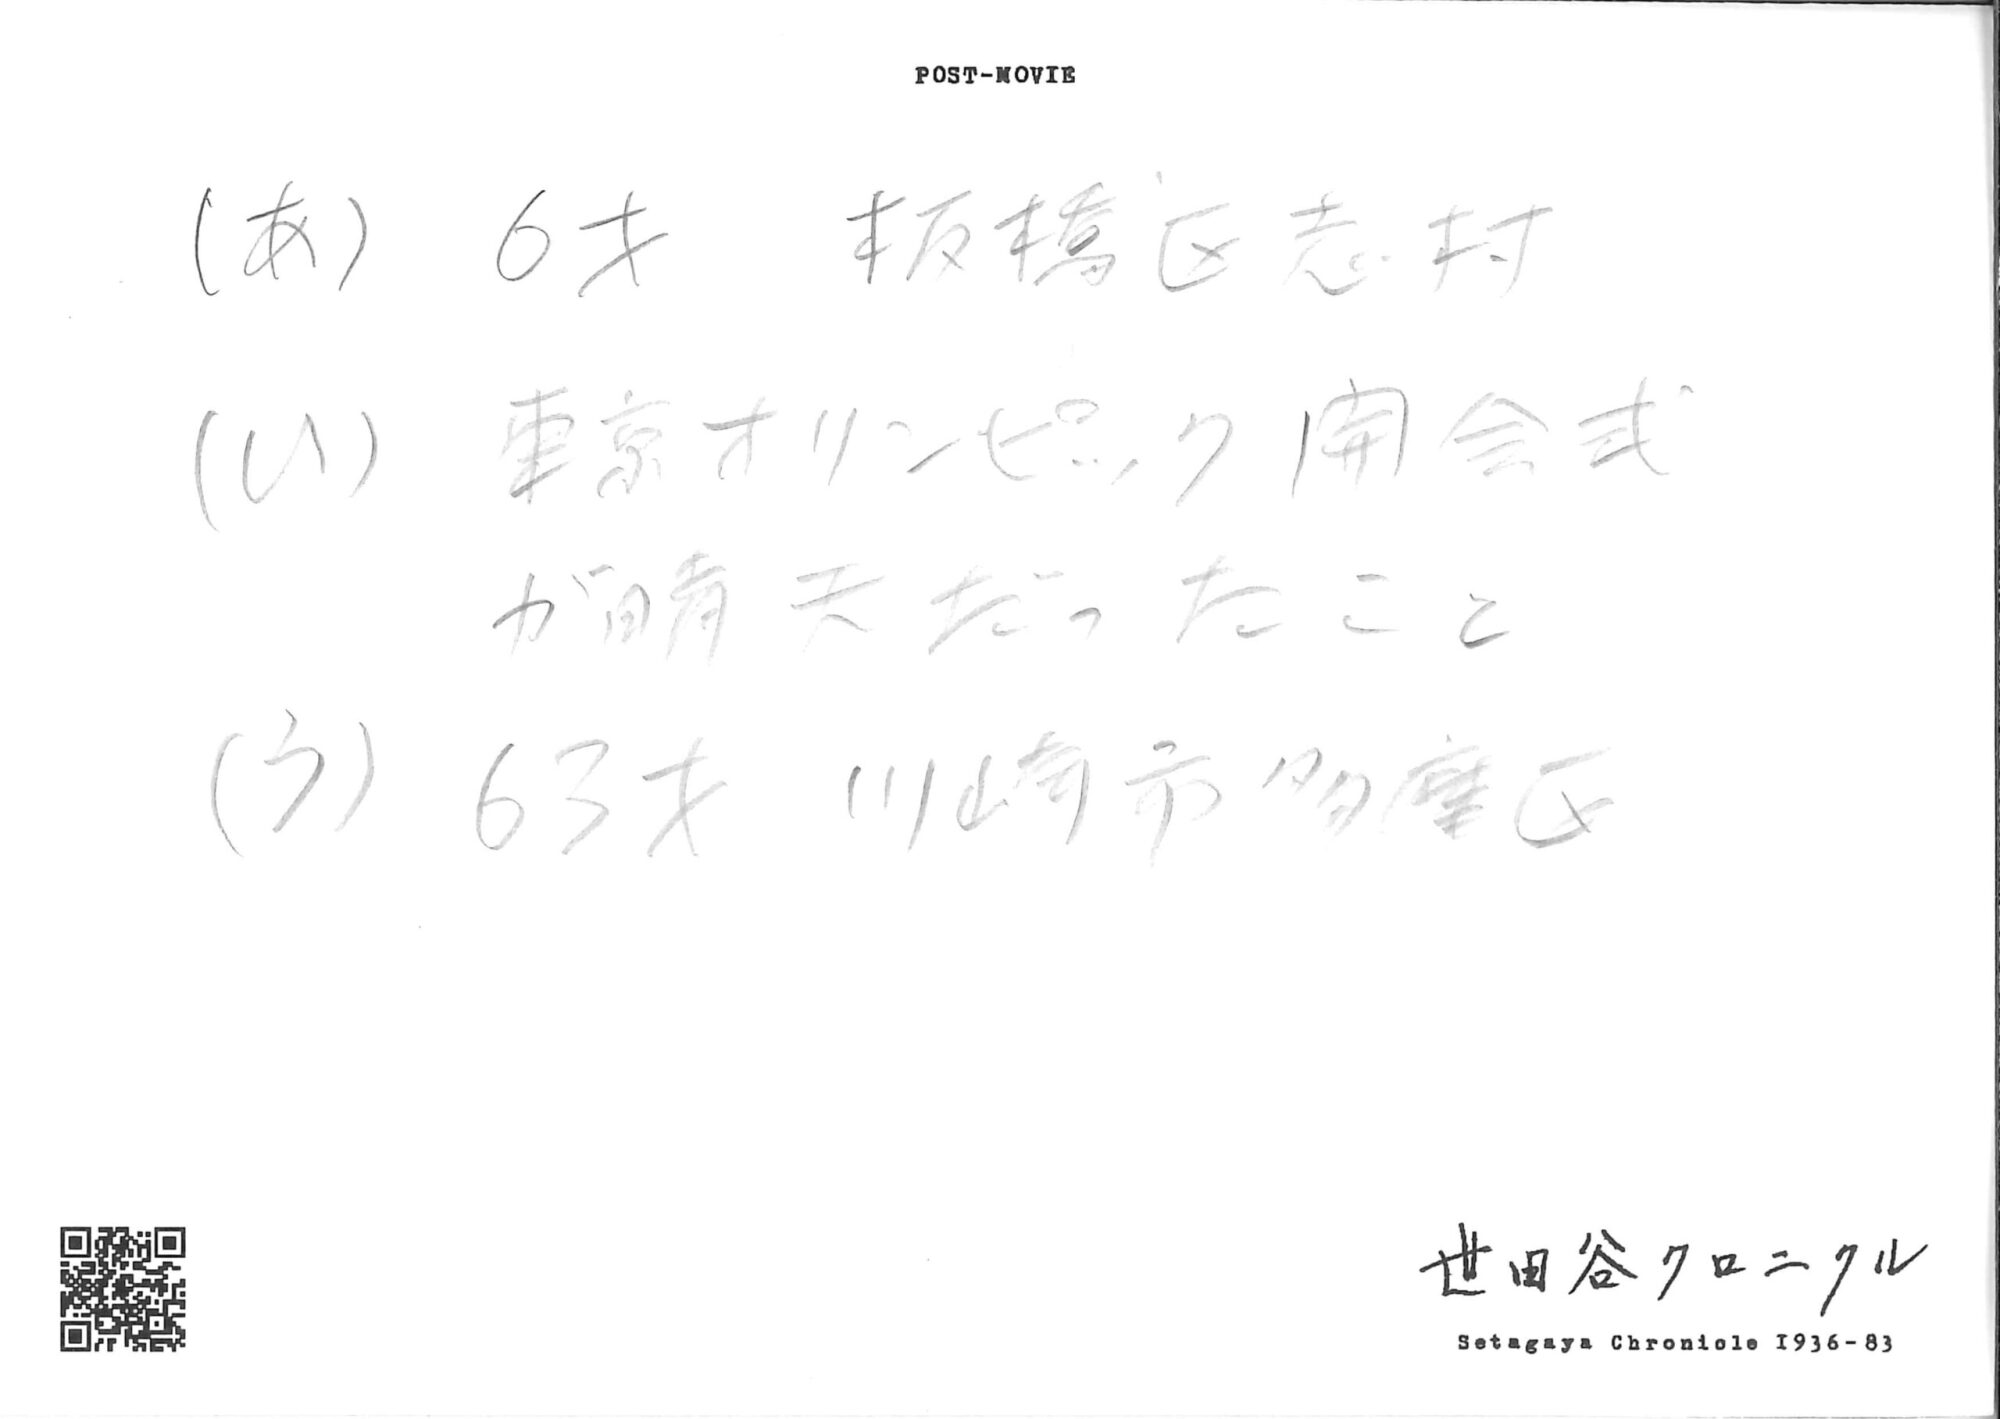 POST-MOVIE
(あ) 6才 板橋区志村
(い) 東京オリンピック開会式
が晴天だったこと
(う) 63才 川崎市多摩区
世田谷クロニクル
Setagaya Chronicle 1936-83